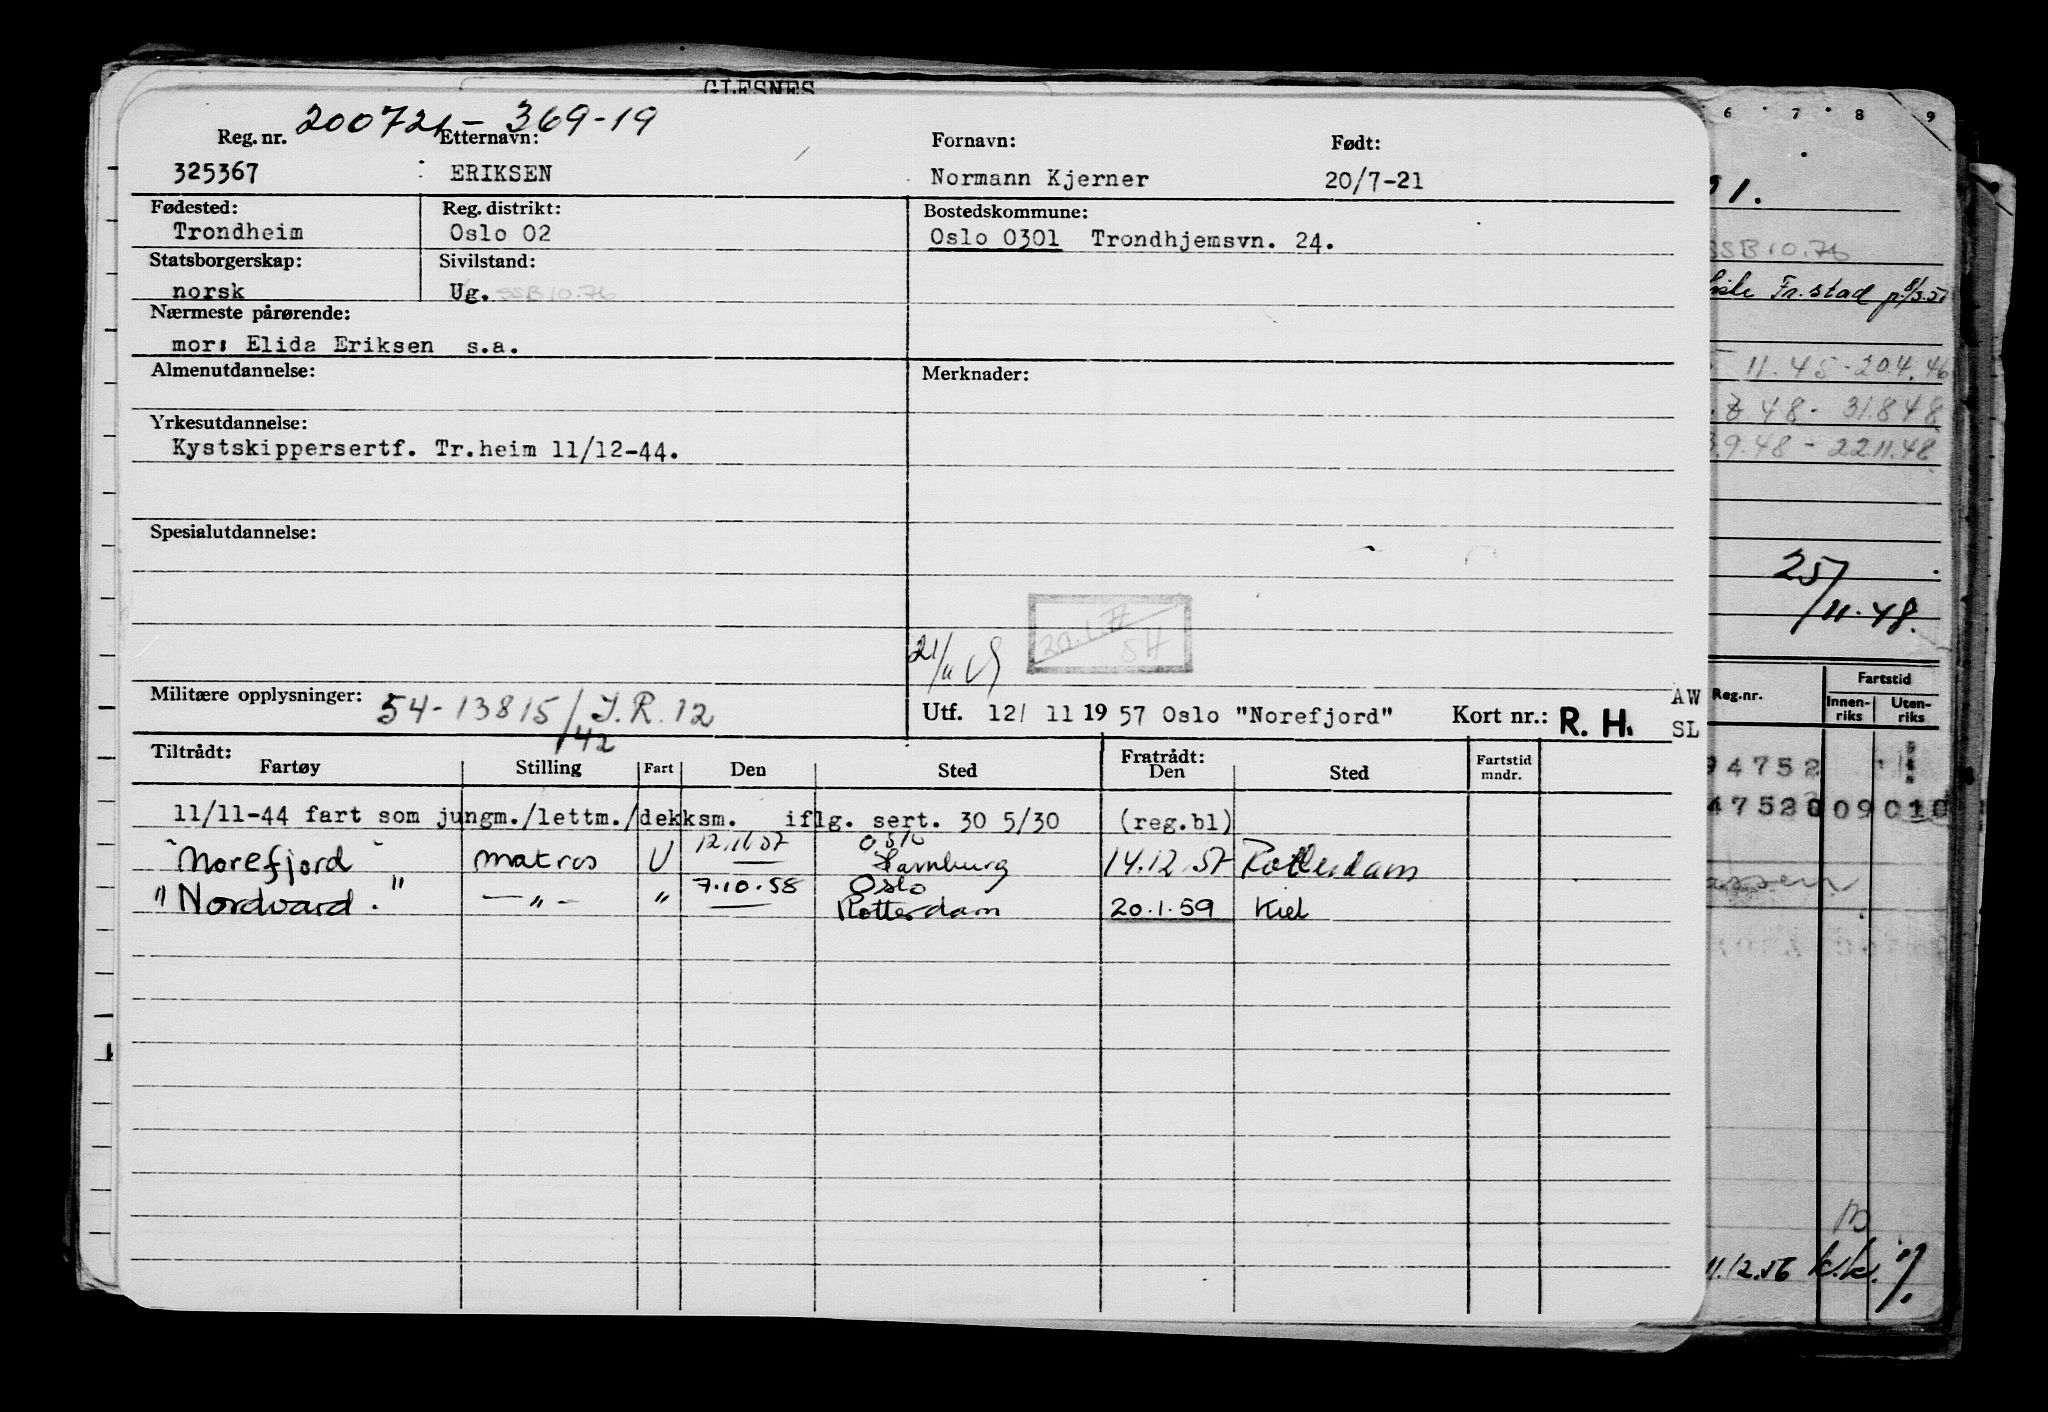 GLESNES
200721 - 369-19
Reg. nr. Etternavn: Fornavn: Født:
325367 ERIKSEN Normann Kjerner 20/7-21
Fødested: Reg. distrikt: Bostedskommune:
Trondheim Oslo 02 Oslo 0301 Trondhjemsvn. 24.
Statsborgerskap: Sivilstand:
norsk Ug. SSB 10.76
Nærmeste pårørende:
mor: Elida Eriksen s.a.
Almenutdannelse: Merknader:
Yrkesutdannelse:
Kystskippersertf. Tr.heim 11/12-44.
Spesialutdannelse:
21/11
Militære opplysninger: 54-13815/42 I.R. 12
Utf. 12/ 11 19 57 Oslo "Norefjord" Kort nr.: R. H. AW SL
Tiltrådt: Fratrådt:
Fartøy Stilling Fart Den Sted Den Sted Fartstid mndr.
11/11-44 fart som jungm./lettm./dekksm. iflg. sert. 30 5/30 (reg.bl)
"Norefjord" matros U 12.11.57 Oslo Hamburg 14.12.57 Rotterdam
"Nordvard." — " — " 7.10.58 Oslo Rotterdam 20.1.59 Kiel
6 7 8 9
1.
SSB 10.76
Fr.stad
11.45-20.4.46
48- 31.8.48
9.48-22.11.48
25/11.48.
Reg.nr. Fartstid
Innenriks Utenriks
94752
47520 09 010
11.12.56 k.k.